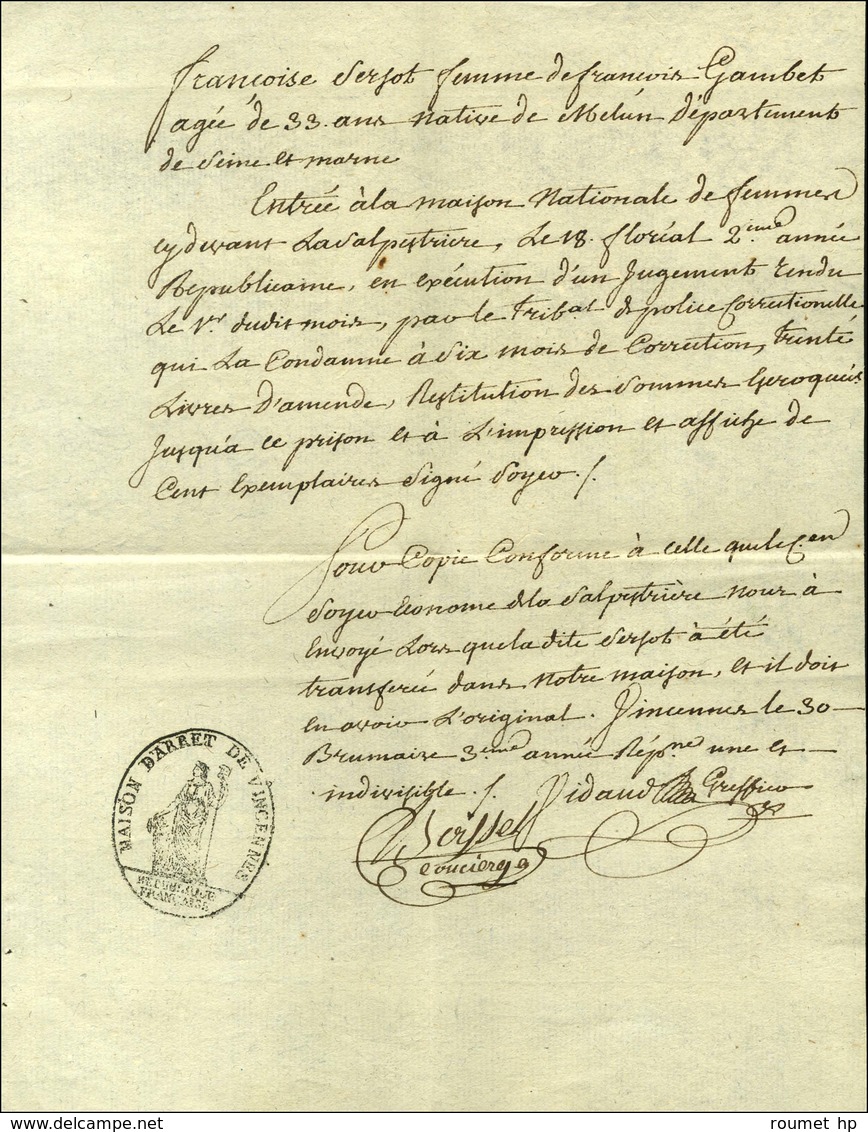 françoise Sersot femme de françois Gambet
agée de 33. ans native de Melun Département
de Seine et marne
Entrée à la maison Nationale de femmes
cy devant La Salpestrière, Le 18. floréal 2.eme année
Republicaine, en exécution d'un Jugement rendu
Le 1.er dudit mois, par le Trib.al de police Correctionelle
qui La Condamne à Six mois de Correction, trente
Livres D'amende, Restitution des Sommes Escroquées
Jusqu'a ce prison et à L'impression et affiche de
Cent Exemplaires Signé Soyer ./.
Pour Copie Conforme à celle que le C.en
Soyer Econome de la Salpestrière nous à
Envoyé Lors que la dite Sersot à été
transferée dans notre maison, et il doit
en avoir L'original. Vincennes le 30
Brumaire 3.eme année Rép.ne une et
indivisible ./. Vidaud Greffier
concierge
MAISON D'ARRET DE VINCENNES
REPUBLIQUE
FRANÇAISE
www.delcampe.net
roumet hp